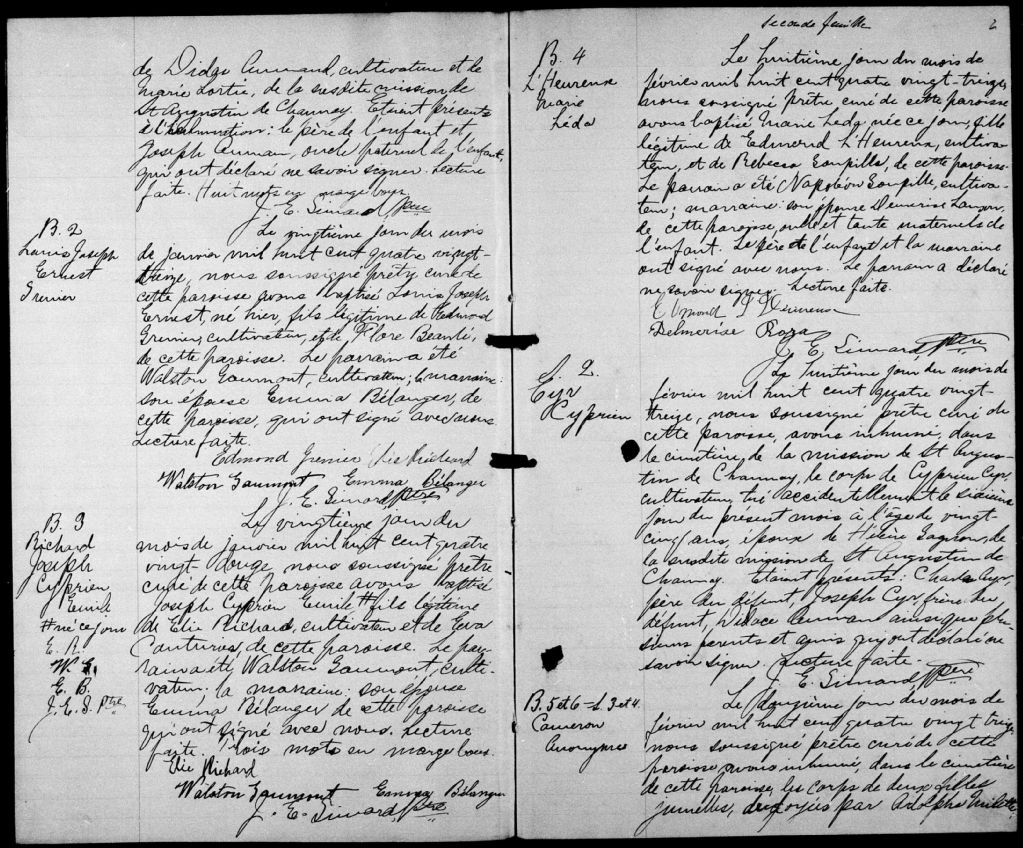 de Didace Aumand, cultivateur et de
Marie Lortie, de la susdite mission de
St Augustin de Channay. Etaient présents
à l'inhumation: le père de l'enfant et
Joseph Auman, oncle paternel de l'enfant,
qui ont déclaré ne savoir signer. Lecture
faite. Huit mots en marge bons.
J. E. Simard, Ptre
B. 2
Louis Joseph
Ernest
Grenier
Le vingtième jour du mois
de janvier mil huit cent quatre vingt-
treize, nous soussigné prêtre curé de
cette paroisse avons baptisé Louis Joseph
Ernest, né hier, fils légitime de Edmond
Grenier, cultivateur, et de Flore Beaulé,
de cette paroisse. Le parrain a été
Walston Gaumont, cultivateur; la marraine:
son épouse Emma Bélanger, de
cette paroisse, qui ont signé avec nous
Lecture faite.
Edmond Grenier Elie Richard
Walston Gaumont Emma Bélanger
J. E. Simard Ptre
B. 3
Richard
Joseph
Cyprien
Emile
# né ce jour
E. R.
W. G.
E. B.
J. E. S. Ptre
Le vingtième jour du
mois de janvier mil huit cent quatre
vingt douze nous soussigné prêtre
curé de cette paroisse avons baptisé
Joseph Cyprien Emile # fils légitime
de Elie Richard, cultivateur et de Eva
Couturier, de cette paroisse. Le par-
rain a été Walston Gaumont, culti-
vateur: la marraine: son épouse
Emma Bélanger de cette paroisse
qui ont signé avec nous. Lecture
faite. Trois mots en marge bons.
Elie Richard
Walston Gaumont Emma Bélanger
J. E. Simard, Ptre
Seconde feuille 2
B. 4
L'Heureux
Marie
Léda
Le huitième jour du mois de
février mil huit cent quatre vingt-treize,
nous soussigné prêtre, curé de cette paroisse
avons baptisé Marie Léda née ce jour, fille
légitime de Edmond L'Heureux, cultiva-
teur, et de Rebecca Soupille, de cette paroisse.
Le parrain a été Napoléon Soupille, cultiva-
teur; marraine: son épouse Demerise
de cette paroisse, oncle et tante maternels de
l'enfant. Le père de l'enfant et la marraine
ont signé avec nous. Le parrain a déclaré
ne savoir signer. Lecture faite.
Edmond L'Heureux
Delmerise Roza
J. E. Simard Ptre
S. 2.
Cyr
Cyprien
Le huitième jour du mois de
février mil huit cent quatre vingt-
treize, nous soussigné prêtre curé de
cette paroisse, avons inhumé, dans
le cimetière, de la mission de St Augus-
tin de Channay, le corps de Cyprien Cyr,
cultivateur, tué accidentellement le sixième
jour du présent mois à l'âge de vingt-
cinq ans, époux de Hélène Gagnon, de
la susdite mission de St Augustin de
Channay. Etaient présents: Charles Cyr,
père du défunt, Joseph Cyr, frère du
défunt, Didace Auman ainsi que plu-
sieurs parents et amis qui ont déclaré ne
savoir signer. Lecture faite.
J. E. Simard Ptre
B. 5 et 6 - S. 3 et 4.
Cameron
Anonymes
Le douzième jour du mois de
février mil huit cent quatre vingt treize
nous soussigné prêtre curé de cette
paroisse, avons inhumé, dans le cimetière
de cette paroisse, les corps de deux filles
jumelles, ondoyées par Adolphe